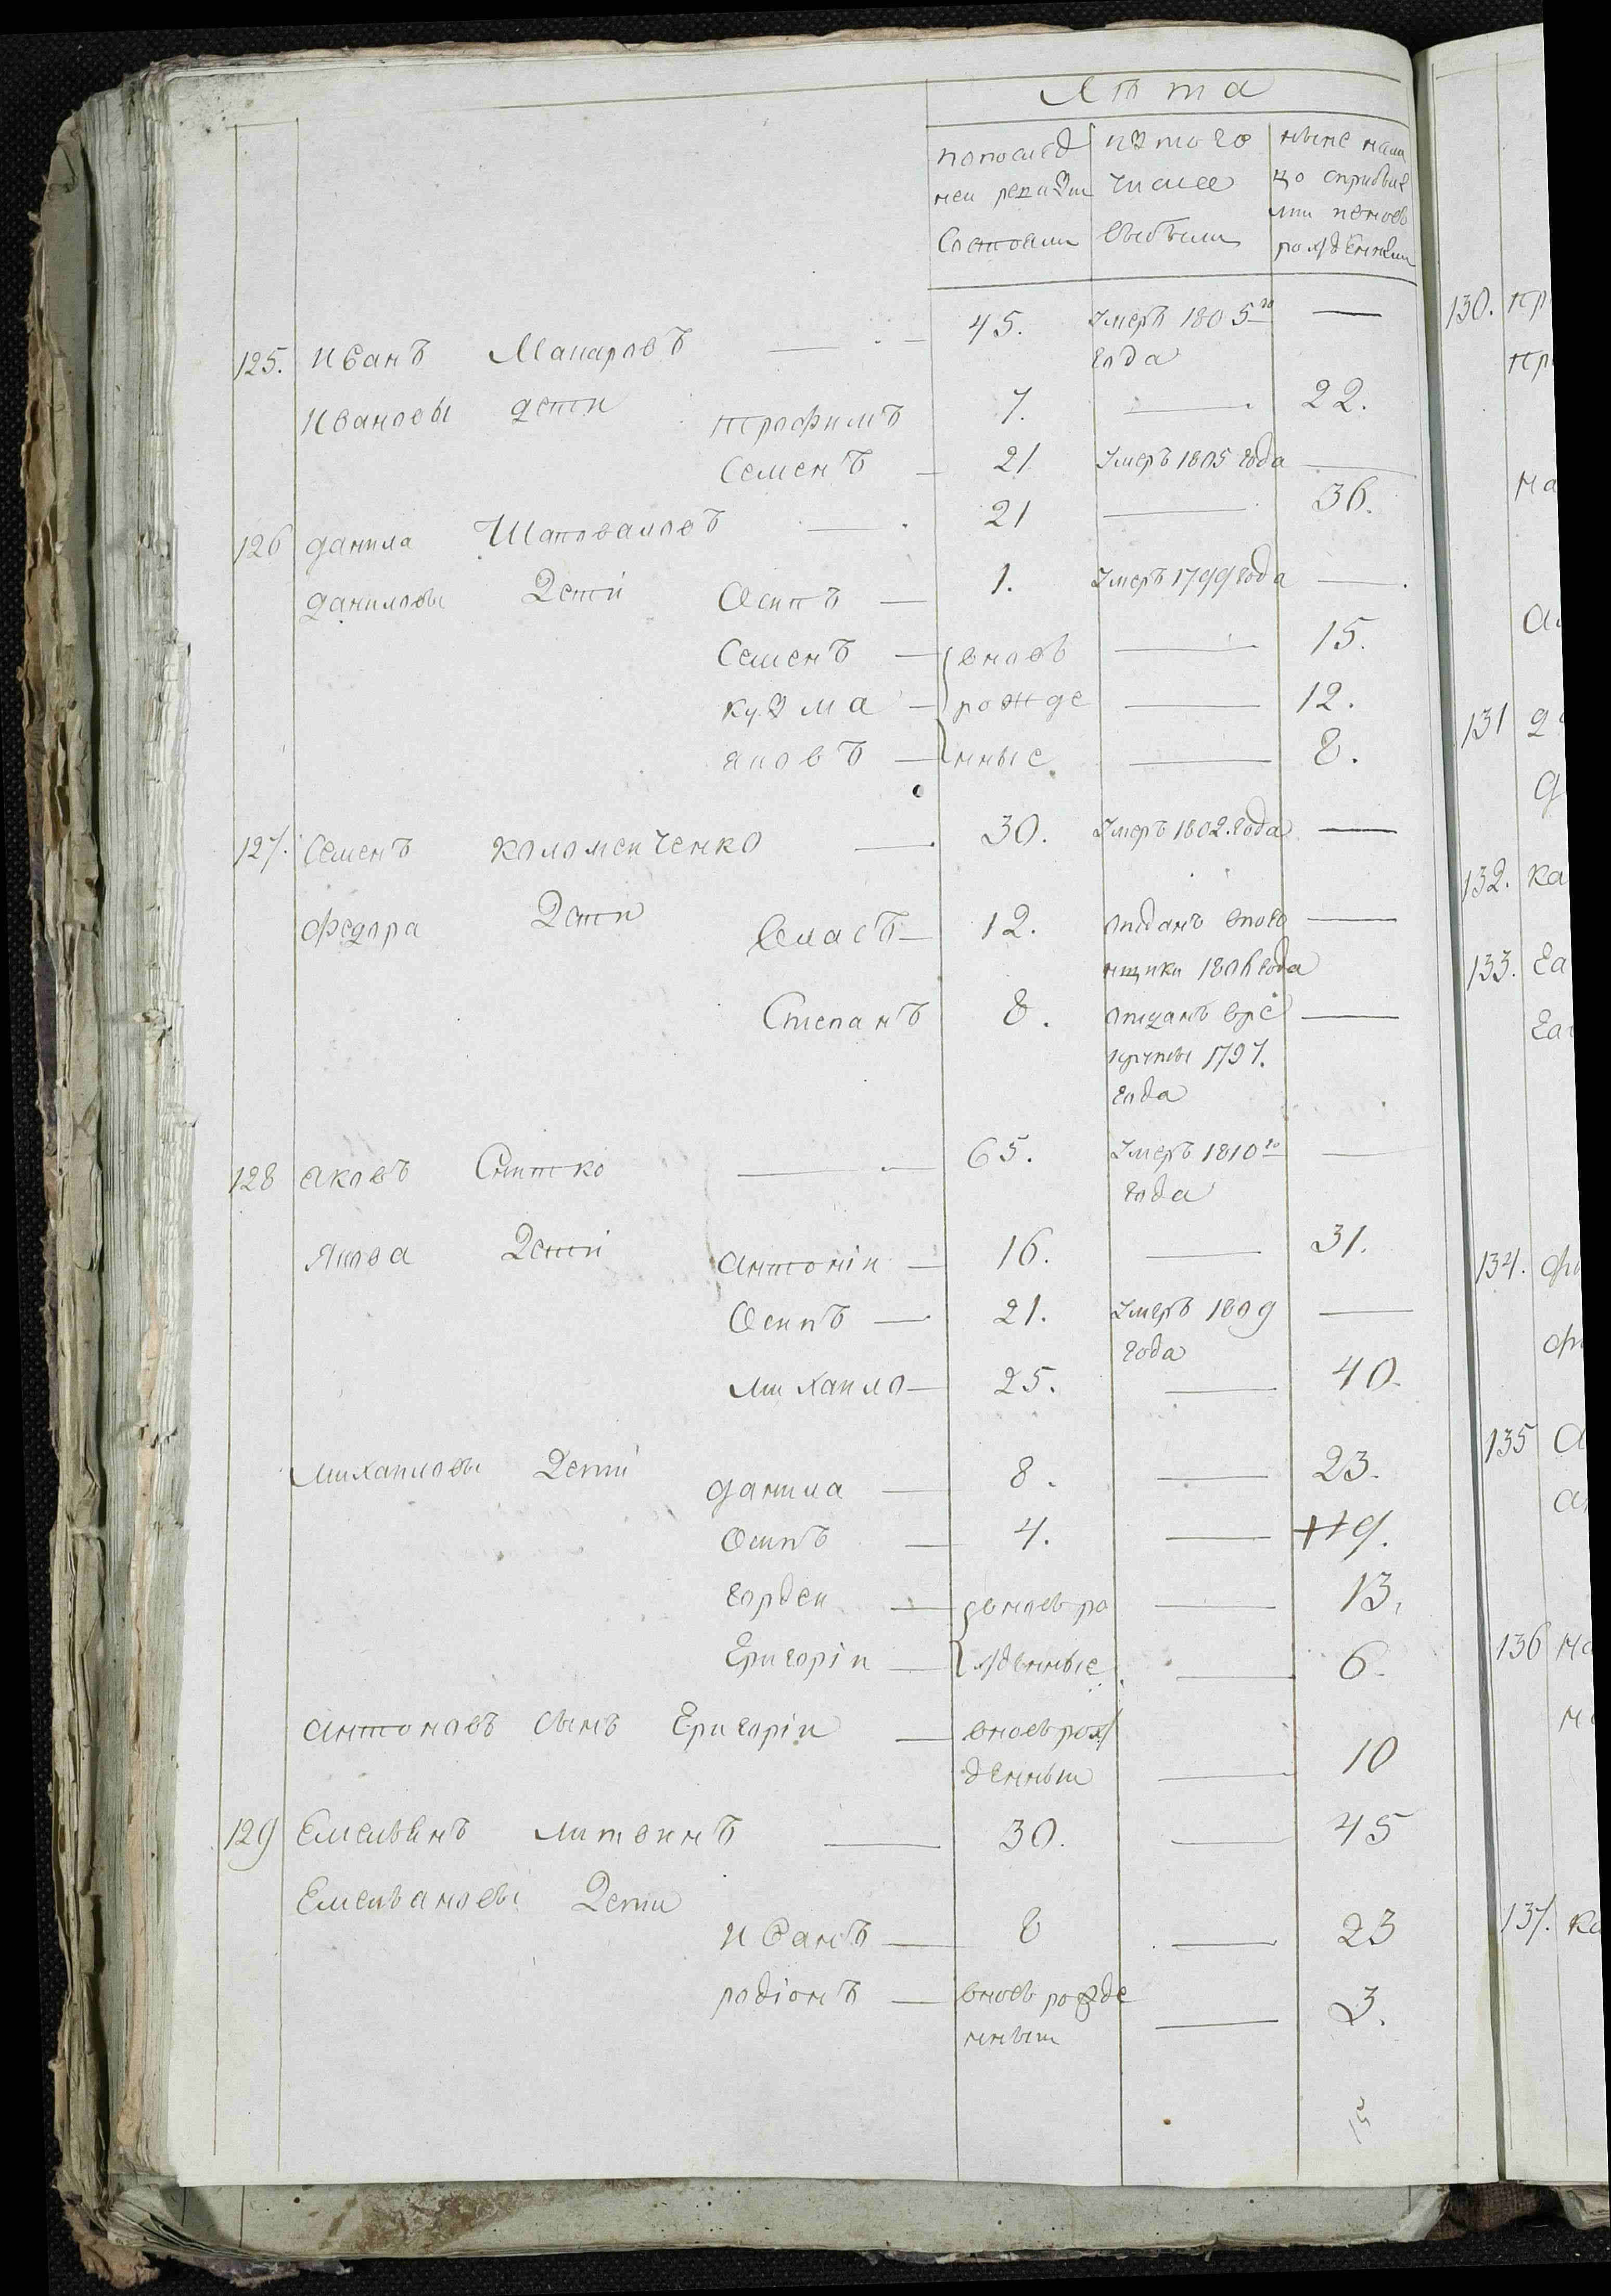 Лѣта
попослѣд изъ того ныне нали
неи ревизии числа цо сприбыв
состояли выбыли шми иновь
рожденными
125. Иванъ Макаровъ — 45. Умеръ 1805го —
года
Ивановы дети трофимъ 7. — 22.
Семенъ — 21 Умеръ 1805 года —
126 данила Шаповаловъ — 21 — 36.
даниловы Дети Осипъ — 1. Умеръ 1799 года —
Семенъ — вновь — 15.
кузма — рожде — 12.
яковъ — нные — 8.
127. Семенъ коломейченко — 30. Умеръ 1802. года —
Федора Дети Власъ — 12. отданъ впого —
нщики 1806 года
Степанъ 8. отданъ вре —
круты 1797.
года
128 яковъ Снитко — 65. Умеръ 1810го —
года
Якова Дети антоніи — 16. — 31.
Осипъ — 21. Умеръ 1809 —
года
михаило — 25. — 40.
михаиловы Дети данила — 8. — 23.
Осипъ — 4. — 19.
гордеи — вновь ро — 13.
Григоріи — жденные — 6.
антоновъ сынъ Григоріи — вновь рож
денныи — 10
129 Емельянъ литвинъ — 30. — 45
Емельяновы Дети
Иванъ — 8 — 23
родіонъ — вновь рожде — 3.
нныи
130. пр
пр
на
131 д
132. ка
133. га
га
134. фи
135 а
136 на
137. ка